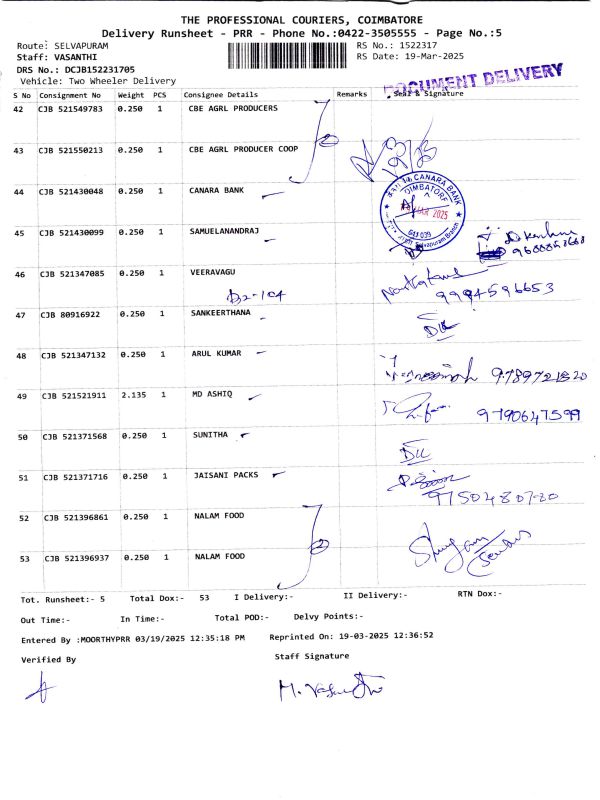 THE PROFESSIONAL COURIERS, COIMBATORE
Delivery Runsheet - PRR - Phone No.:0422-3505555 - Page No.:5
Route: SELVAPURAM RS No.: 1522317
Staff: VASANTHI RS Date: 19-Mar-2025
DRS No.: DCJB152231705
Vehicle: Two Wheeler Delivery
DOCUMENT DELIVERY
S No Consignment No Weight PCS Consignee Details Remarks Seal & Signature
42 CJB 521549783 0.250 1 CBE AGRL PRODUCERS
43 CJB 521550213 0.250 1 CBE AGRL PRODUCER COOP
44 CJB 521430048 0.250 1 CANARA BANK
CANARA BANK
MAR 2025
641 039
Selvapuram Branch
45 CJB 521430099 0.250 1 SAMUELANANDRAJ
46 CJB 521347085 0.250 1 VEERAVAGU
D2-104 9994596653
47 CJB 80916922 0.250 1 SANKEERTHANA
48 CJB 521347132 0.250 1 ARUL KUMAR
9789721820
49 CJB 521521911 2.135 1 MD ASHIQ
9790647599
50 CJB 521371568 0.250 1 SUNITHA
51 CJB 521371716 0.250 1 JAISANI PACKS
9750480720
52 CJB 521396861 0.250 1 NALAM FOOD
53 CJB 521396937 0.250 1 NALAM FOOD
Tot. Runsheet:- 5 Total Dox:- 53 I Delivery:- II Delivery:- RTN Dox:-
Out Time:- In Time:- Total POD:- Delvy Points:-
Entered By :MOORTHYPRR 03/19/2025 12:35:18 PM Reprinted On: 19-03-2025 12:36:52
Verified By Staff Signature